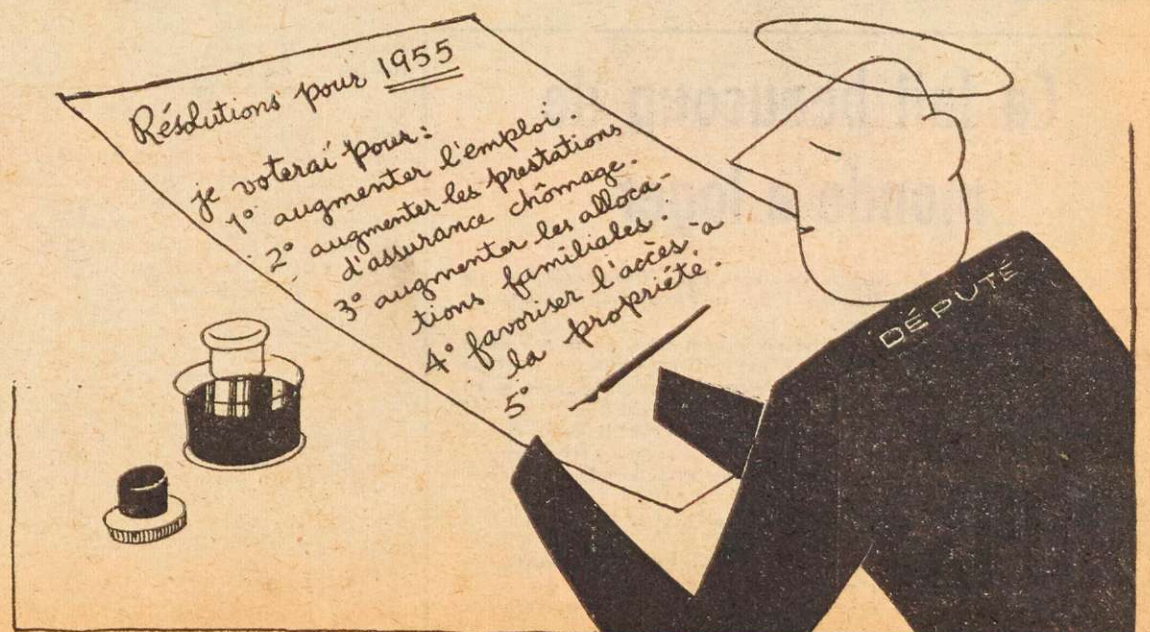 Résolutions pour 1955
je voterai pour:
1° augmenter l'emploi.
2° augmenter les prestations
d'assurance chômage.
3° augmenter les alloca-
tions familiales.
4° favoriser l'accès à
la propriété.
5°
DÉPUTÉ